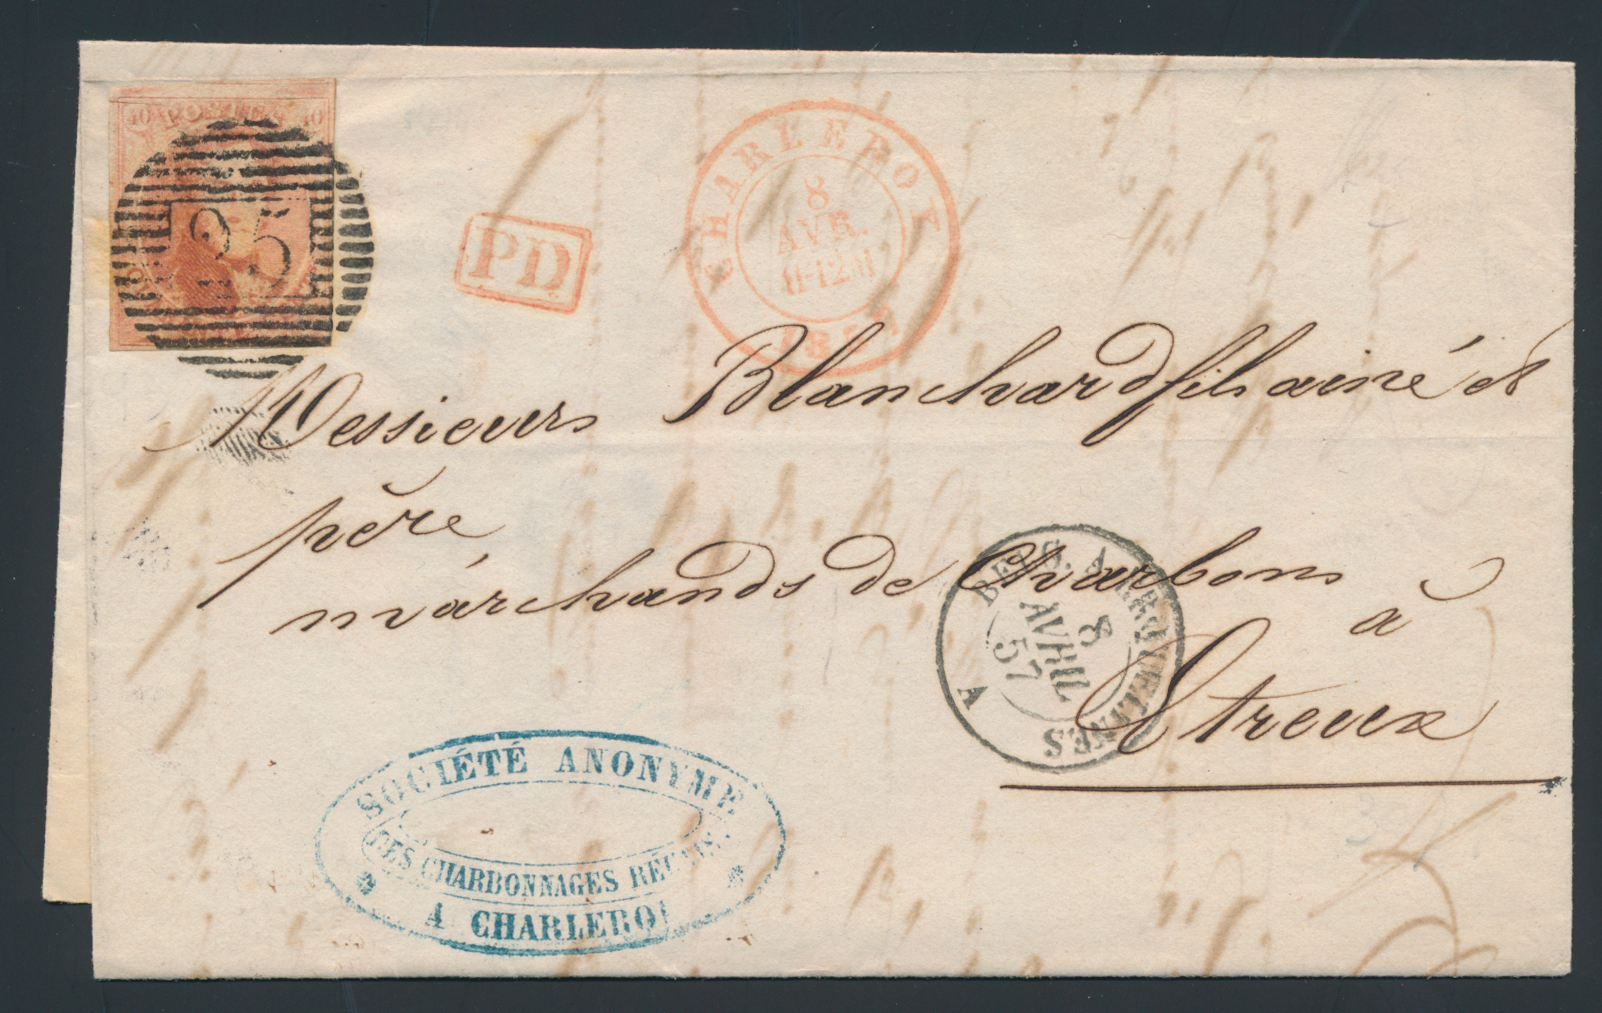 40 POSTES 40
25
PD
CHARLEROY
8
AVR.
11-12M
Messieurs Blanchard fils ainé et
père
marchands de Charbons
à
Etreux
BELG. A ERQUELINES
8
AVRIL
57
A
SOCIÉTÉ ANONYME
DES CHARBONNAGES RÉUNIS
A CHARLEROI